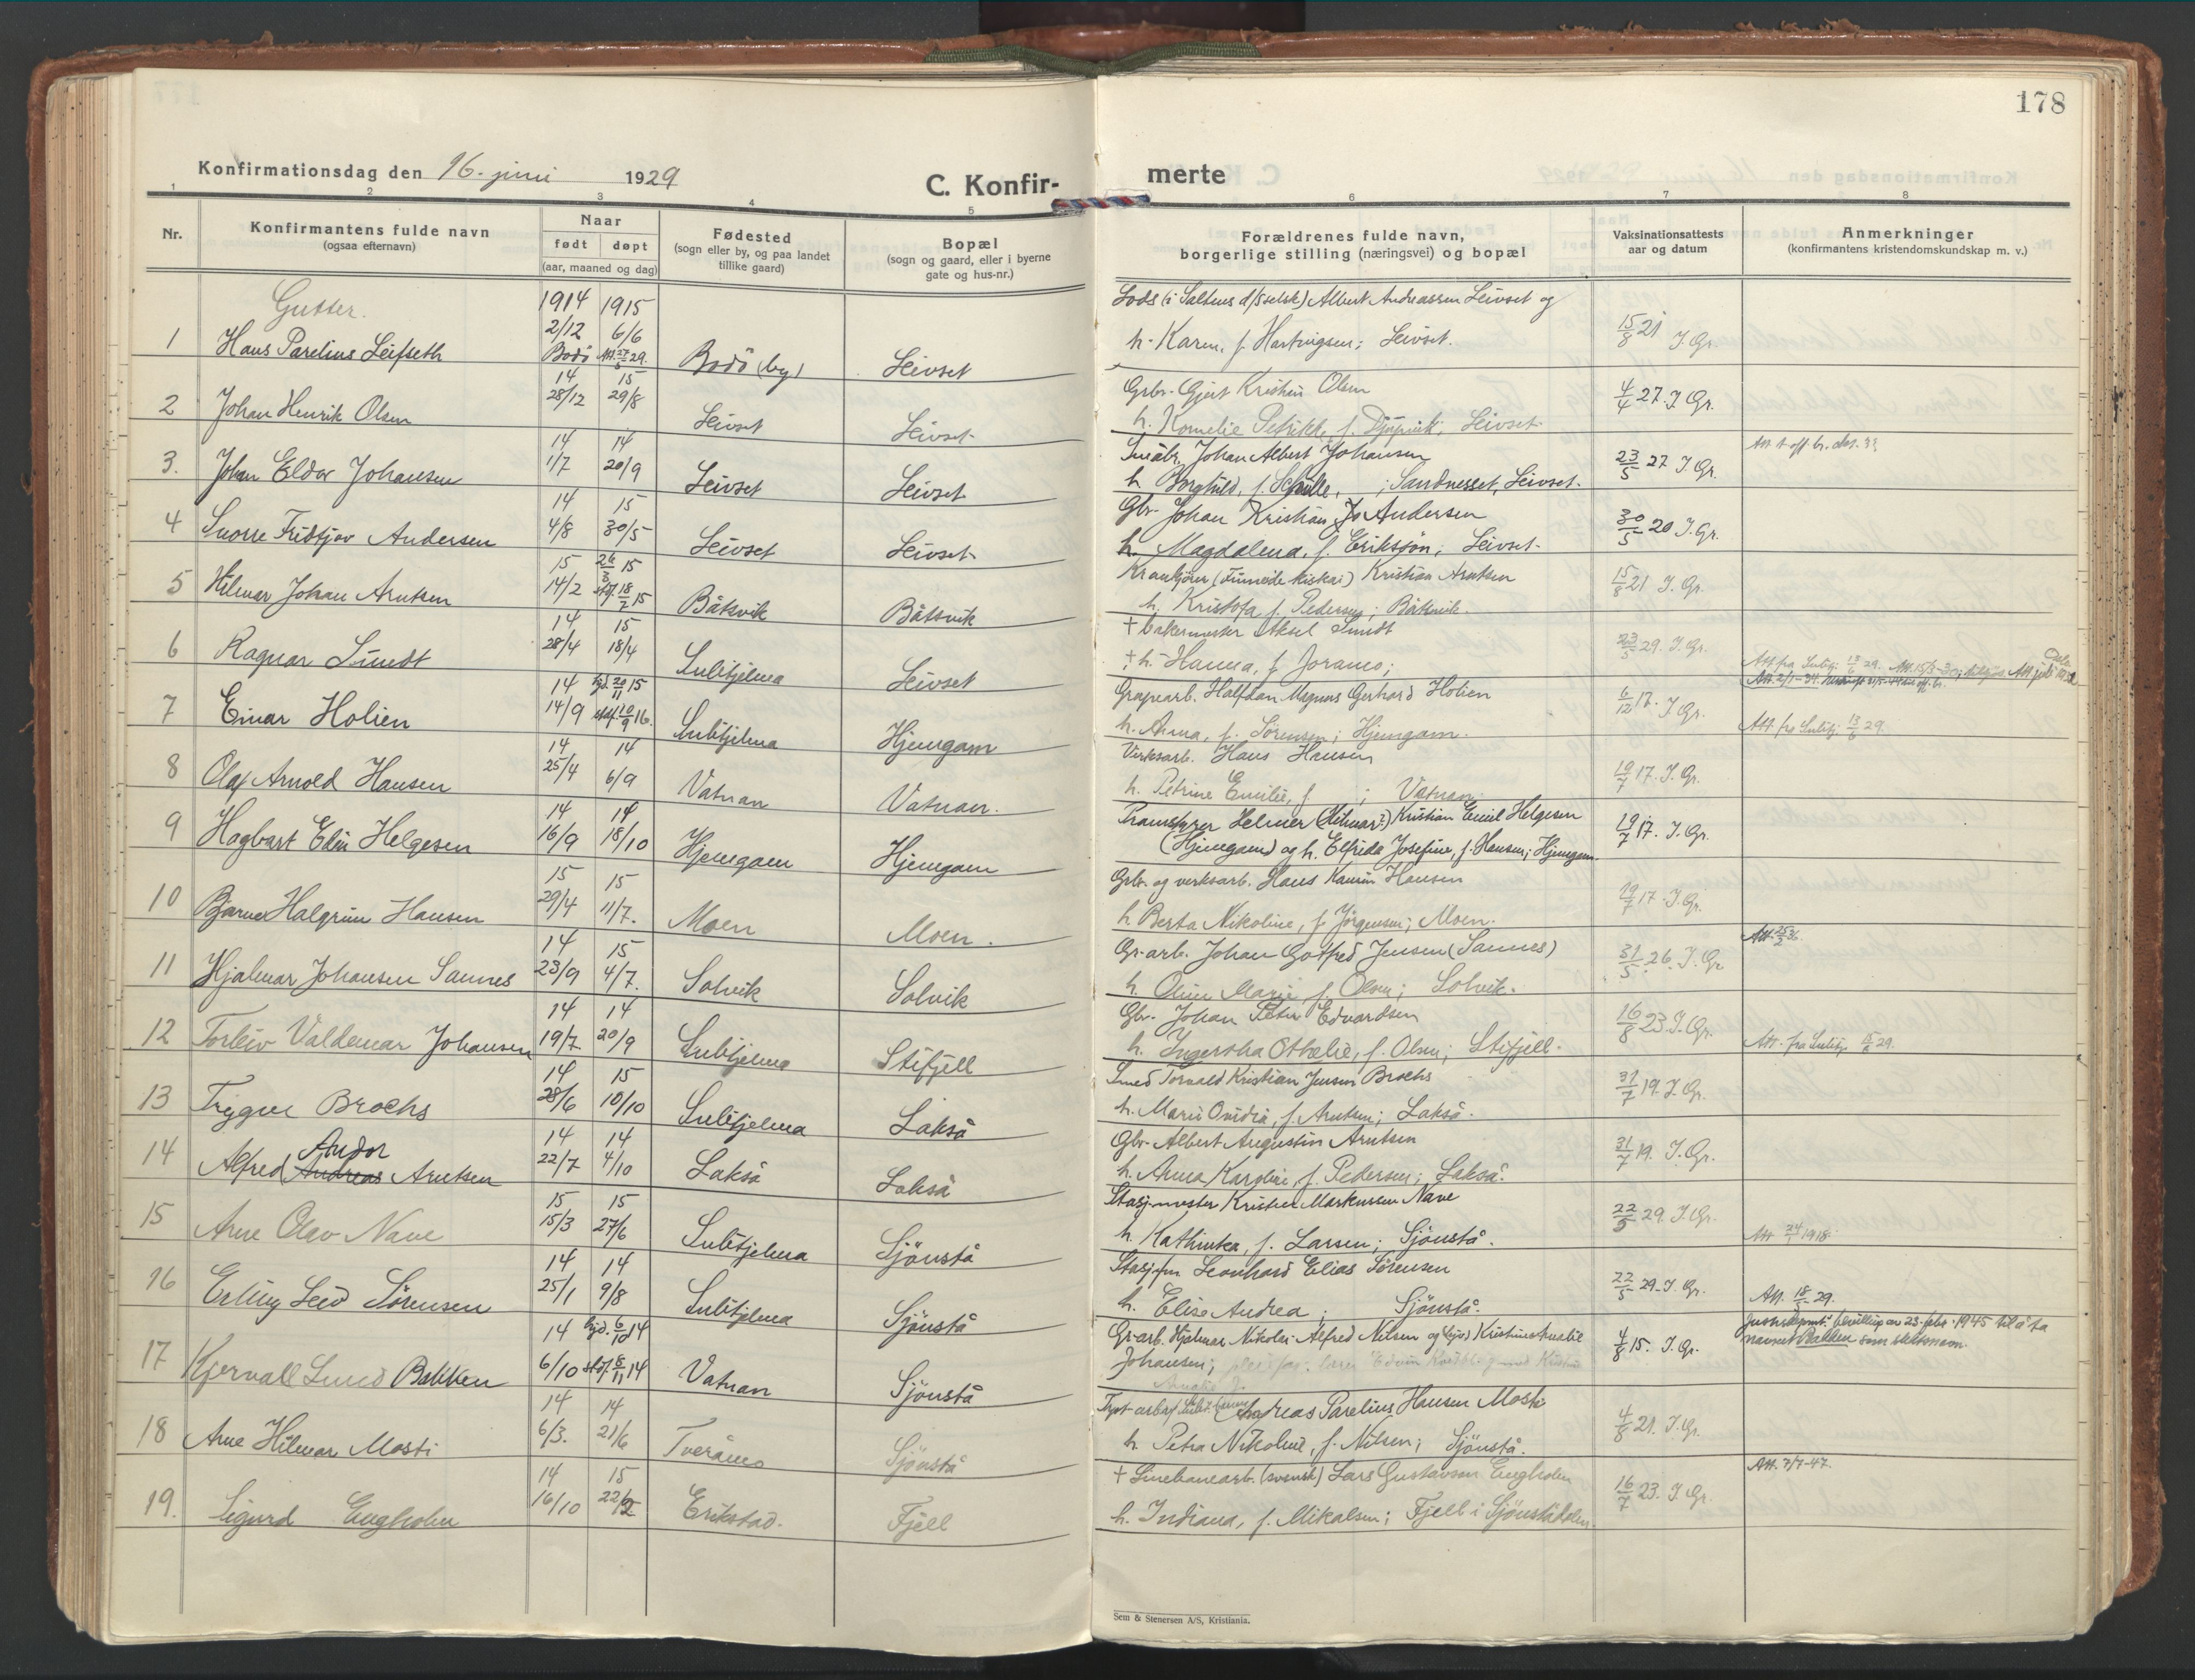 178
Konfirmationsdag den 16. juni 1929
C. Konfir-
merte
1 2 3 4 5 6 7 8
Nr.
Konfirmantens fulde navn
(ogsaa efternavn)
Naar
født døpt
(aar, maaned og dag)
Fødested
(sogn eller by, og paa landet
tillike gaard)
Bopæl
(sogn og gaard, eller i byerne
gate og hus-nr.)
Forældrenes fulde navn,
borgerlige stilling (næringsvei) og bopæl
Vaksinationsattests
aar og datum
Anmerkninger
(konfirmantens kristendomskundskap m. v.)
Gutter.
1914 1915
Lods (i Saltens d/s selsk) Albert Andreassen Leivset og
1 Hans Parelius Leifseth 2/12 6/6 Bodö (by) Leivset h. Karen, f. Hartvigsen; Leivset. 15/8 21 J. Gr.
Bodö Att. 27/5 29.
14 15 Grbr. Gjert Kristian Olsen
2 Johan Henrik Olsen 28/12 29/8 Leivset Leivset h. Kornelie Petrikke, f. Leivset 4/4 27. J. Gr.
14 14 Småbr. Johan Albert Johansen
3. Johan Eldor Johansen 1/7 20/9 Leivset Leivset h. Borghild, f. ; Sandnesset, Leivset. 23/5 27 J. Gr.
14 15 Gbr. Johan Kristian Jo Andersen
4 Snorre Fridtjov Andersen 4/8 30/5 Leivset Leivset h. Magdalena, f. Eriksson; Leivset. 30/5 20 J. Gr.
15 26/3 15 Krankjører (Finneide kiskai) Kristian Arntsen
5 Hilmar Johan Arntsen 14/2 stf. 18/2 15 Båtsvik Båtsvik h. Kristofa, f. Pedersen; Båtsvik. 15/8 21 J. Gr.
14 15 + bakermester Aksel Smidt
6 Ragnar Smidt 28/4 18/4 Sulitjelma Leivset + h. Hanna, f. Joramo; 23/5 29. J. Gr. Att fra Sulitj. 13/6 29.
14 hjd. 20/11 15 Grapearb. Halfdan Magnus Gerhard Holien
7 Einar Holien 14/9 stf. 10/9 16. Sulitjelma Hjemgam h. Anna, f. Sørensen; Hjemgam. 6/12 17. J. Gr. Att. fra Sulitj. 13/6 29.
14 14 Verksarb. Hans Hansen
8 Olaf Arnold Hansen 25/4 6/9 Vatnan Vatnan. h. Petrine Emilie, f. ; Vatnan. 19/7 17. J. Gr.
14 14 Pramstyrer Helmer (Hilmar?) Kristian Emil Helgesen
9 Hagbart Edin Helgesen 16/9 18/10 Hjemgam Hjemgam (Hjemgam) og h. Elfrida Josefine, f. Hansen; Hjemgam. 19/7 17. J. Gr.
15 15 Grbr. og verksarb. Hans Kaurin Hansen
10 Bjarne Halgrim Hansen 29/4 11/7. Moen Moen. h. Berta Nikoline, f. Jörgensen; Moen. 19/7 17. J. Gr.
14 15 Gr-arb. Johan Gotfred Jensen (Sannes)
11 Hjalmar Johansen Sannes 23/9 4/7. Solvik Solvik h. Oline Marie, f. Olsen; Solvik. 31/5 26. J. Gr Att. 25/2 36.
14 14 Gbr. Johan Peter Edvardsen
12 Torleiv Valdemar Johansen 19/7 20/9 Sulitjelma Stifjell h. Ingertha Othelie, f. Olsen; Stifjell. 16/8 23. J. Gr. Att. fra Sulitj. 5/6 29.
14 15 Smed Torvald Kristian Jensen Brochs
13 Trygve Brochs 28/6 10/10 Sulitjelma Lakså h. Marie Ovidia, f. Arntsen; Lakså. 31/7 19. J. Gr.
Andor 14 14 Gbr. Albert Augustin Arntsen
14 Alfred Andreas Arntsen 22/7 4/10 Lakså Lakså h. Anna Karoline, f. Pedersen; Lakså. 31/7 19. J. Gr.
15 15 Stasj.mester Kristian Markussen Nave
15 Arne Olav Nave 15/3 27/6 Sulitjelma Sjönstå h. Kathinka, f. Larsen; Sjönstå. 22/5 29. J. Gr.
14 14 Stasj.fm Leonhard Elias Sörensen
16 Erling Leid Sörensen 25/1 9/8 Sulitjelma Sjönstå h. Elise Andrea ; Sjönstå. 22/5 29. J. Gr. Att. 18/5 29.
14 hjd. 6/10 14 Gr-arb. Hjalmar Nikolai Alfred Nilsen og (ugv.) Kristina Amalie
17 Kjervall Lund Bakken 6/10 stf. 8/11 14 Vatnan Sjönstå Johansen; 4/8 15. J. Gr.
Justisdepmt.s bevilling av 23. febr. 1945 til å ta
navnet Bakken som slektsnavn.
14 14 Andreas Parelius Hansen Mosti
18 Arne Hilmar Mosti 6/3. 21/6 Tveråmo Sjönstå h. Petra Nikoline, f. Nilsen; Sjönstå. 4/8 21. J. Gr.
14 15 + Linebanearb. (svensk) Lars Gustavson Engholm
19. Sigurd Engholm 16/10 22/2 Erikstad. Fjell h. Indiana, f. Mikalsen; Fjell i Sjönstådalen. 16/7 23. J. Gr. Att. 7/7-47.
Sem & Stenersen A/S, Kristiania.